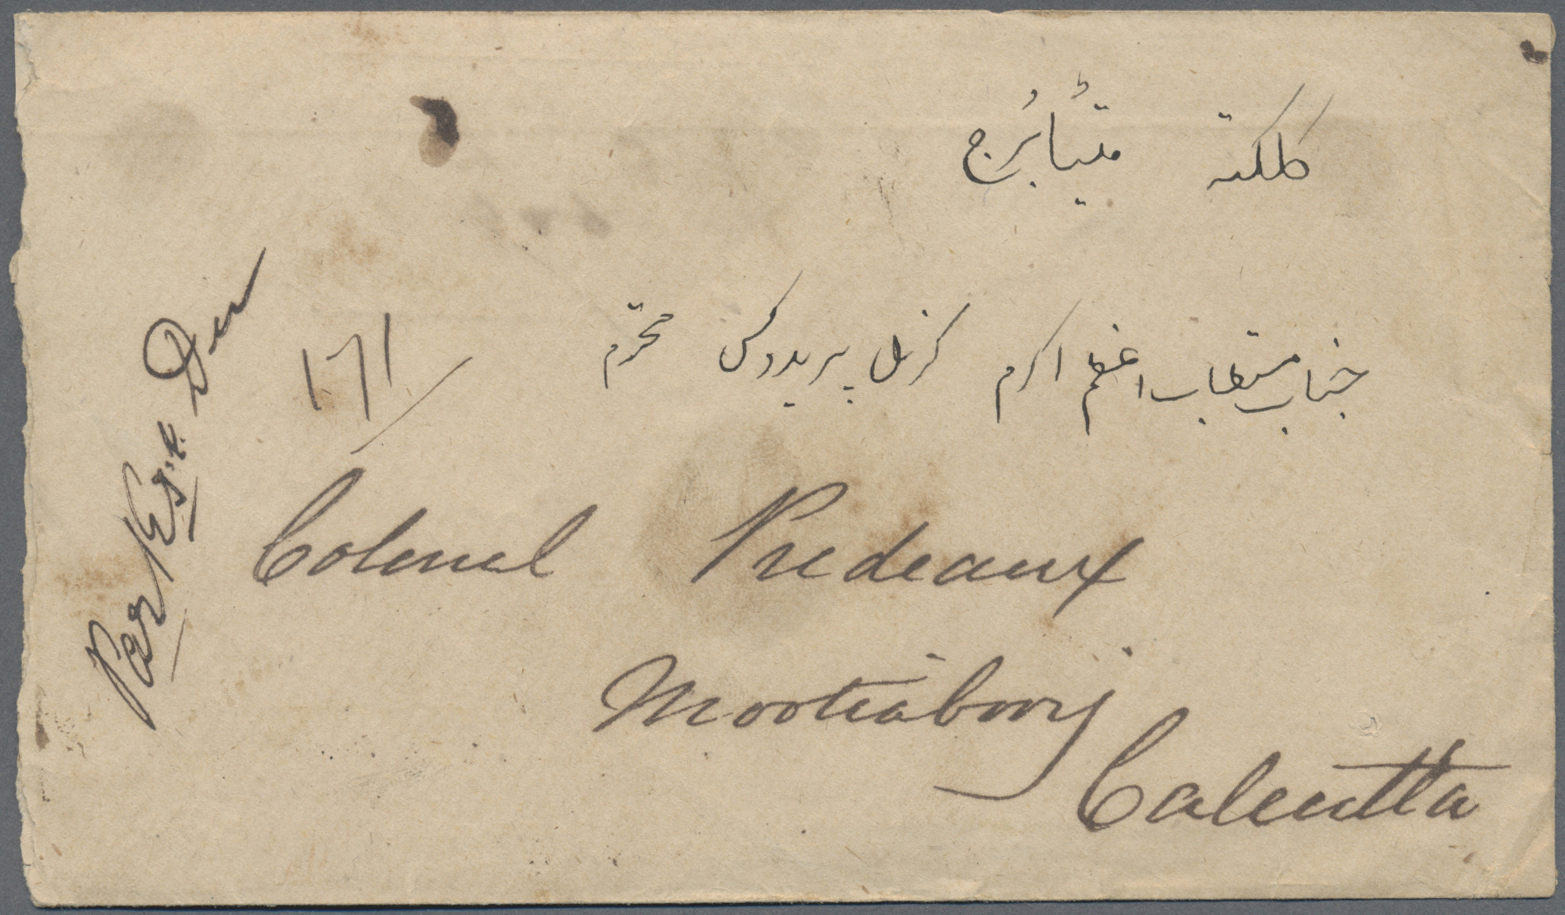 کلکته مٹیا بُرج
جناب مستطاب اعظم اکرم کرنل پریدوکس محترم
171/
Colonel Predeaux
Mootiaboorj
Calcutta